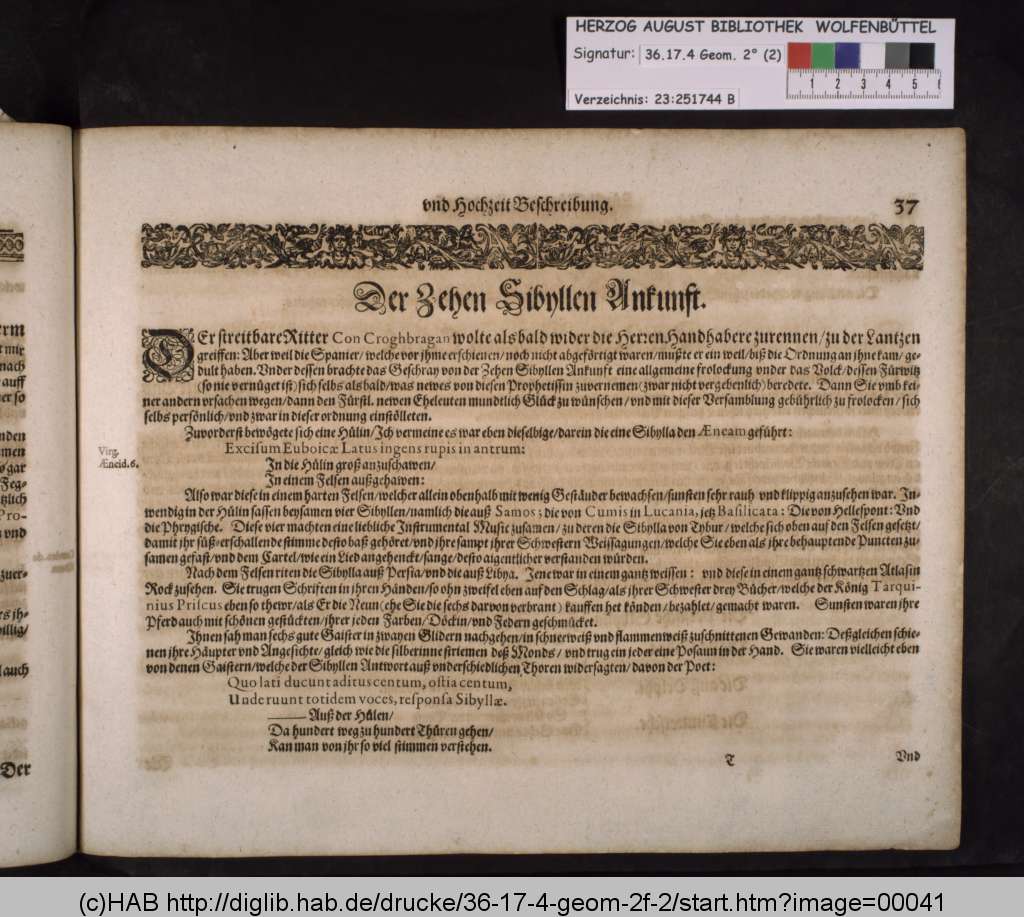 HERZOG AUGUST BIBLIOTHEK WOLFENBÜTTEL
Signatur: 36.17.4 Geom. 2° (2)
Verzeichnis: 23:251744 B
1 2 3 4 5 6
vnd Hochzeit Beschreibung. 37
Der Zehen Sibyllen Ankunft.
DEr streitbare Ritter Con Croghbragan wolte als bald wider die Herren Handhabere zu rennen/ zu der Lantzen
greiffen: Aber weil die Spanier/ welche vor ihme erschienen/ noch nicht abgeförtigt waren/ mußte er ein weil/ biß die Ordnung an ihne kam/ ge-
dult haben. Vnder dessen brachte das Geschray von der Zehen Sibyllen Ankunft eine allgemeine frolockung vnder das Volck/ dessen Fürwitz
(so nie vernüget ist) sich selbs als bald/ was newes von diesen Prophetissin zuvernemen (zwar nicht vergebenlich) beredete. Dann Sie vmb kei-
ner andern vrsachen wegen/ dann den Fürstl. newen Eheleuten mundtlich Glück zu wünschen/ vnd mit dieser Versamblung gebührlich zu frolocken/ sich
selbs persönlich/ vnd zwar in dieser ordnung einstölleten.
Zuvorderst bewögete sich eine Hülin/ Ich vermeine es war eben dieselbige/ darein die eine Sibylla den Æneam geführt:
Virg.
Æneid. 6.
Excisum Euboicæ Latus ingens rupis in antrum:
In die Hülin groß anzuschawen/
In einem Felsen außgehawen:
Also war diese in einem harten Felsen/ welcher allein obenhalb mit wenig Gestäuder bewachsen/ sunsten sehr rauh vnd klippig anzusehen war. In-
wendig in der Hülin sassen beysamen vier Sibyllen/ namlich die auß Samos; die von Cumis in Lucania, jetz Basilicata: Die von Hellespont: Vnd
die Phrygische. Diese vier machten eine liebliche Instrumental Music zusamen/ zu deren die Sibylla von Tybur/ welche sich oben auf den Felsen gesetzt/
damit jhr süß-erschallende stimme desto baß gehöret/ vnd jhre sampt jhrer Schwestern Weissagungen/ welche Sie eben als jhre behauptende Puncten zu-
samen gefast/ vnd dem Cartel/ wie ein Lied angehenckt/ sange/ desto aigentlicher verstanden würden.
Nach dem Felsen riten die Sibylla auß Persia/ vnd die auß Libya. Jene war in einem gantz weissen: vnd diese in einem gantz schwartzen Atlasin
Rock zusehen. Sie trugen Schriften in jhren Händen/ so ohn zweifel eben auf den Schlag/ als jhrer Schwester drey Bücher/ welche der König Tarqui-
nius Priscus eben so thewr/ als Er die Neun (ehe Sie die sechs darvon verbrant) kauffen het könden/ bezahlet/ gemacht waren. Sunsten waren jhre
Pferd auch mit schönen gestückten/ jhrer jeden Farben/ Döckin/ vnd Federn geschmücket.
Ihnen sah man sechs gute Gaister in zwayen Glidern nachgehen/ in schneeweiß vnd flammenweiß zuschnittenen Gewanden: Deßgleichen schie-
nen jhre Häupter vnd Angesichte/ gleich wie die silberinne striemen deß Monds/ vnd trug ein jeder eine Posaun in der Hand. Sie waren vielleicht eben
von denen Gaistern/ welche der Sibyllen Antwort auß vnderschiedlichen Thoren widersagten/ davon der Poet:
Quo lati ducunt aditus centum, ostia centum,
Unde ruunt totidem voces, responsa Sibyllæ.
Auß der Hülen/
Da hundert weg zu hundert Thüren gehen/
Kan man von jhr so viel stimmen verstehen.
T Vnd
Der
(c)HAB http://diglib.hab.de/drucke/36-17-4-geom-2f-2/start.htm?image=00041